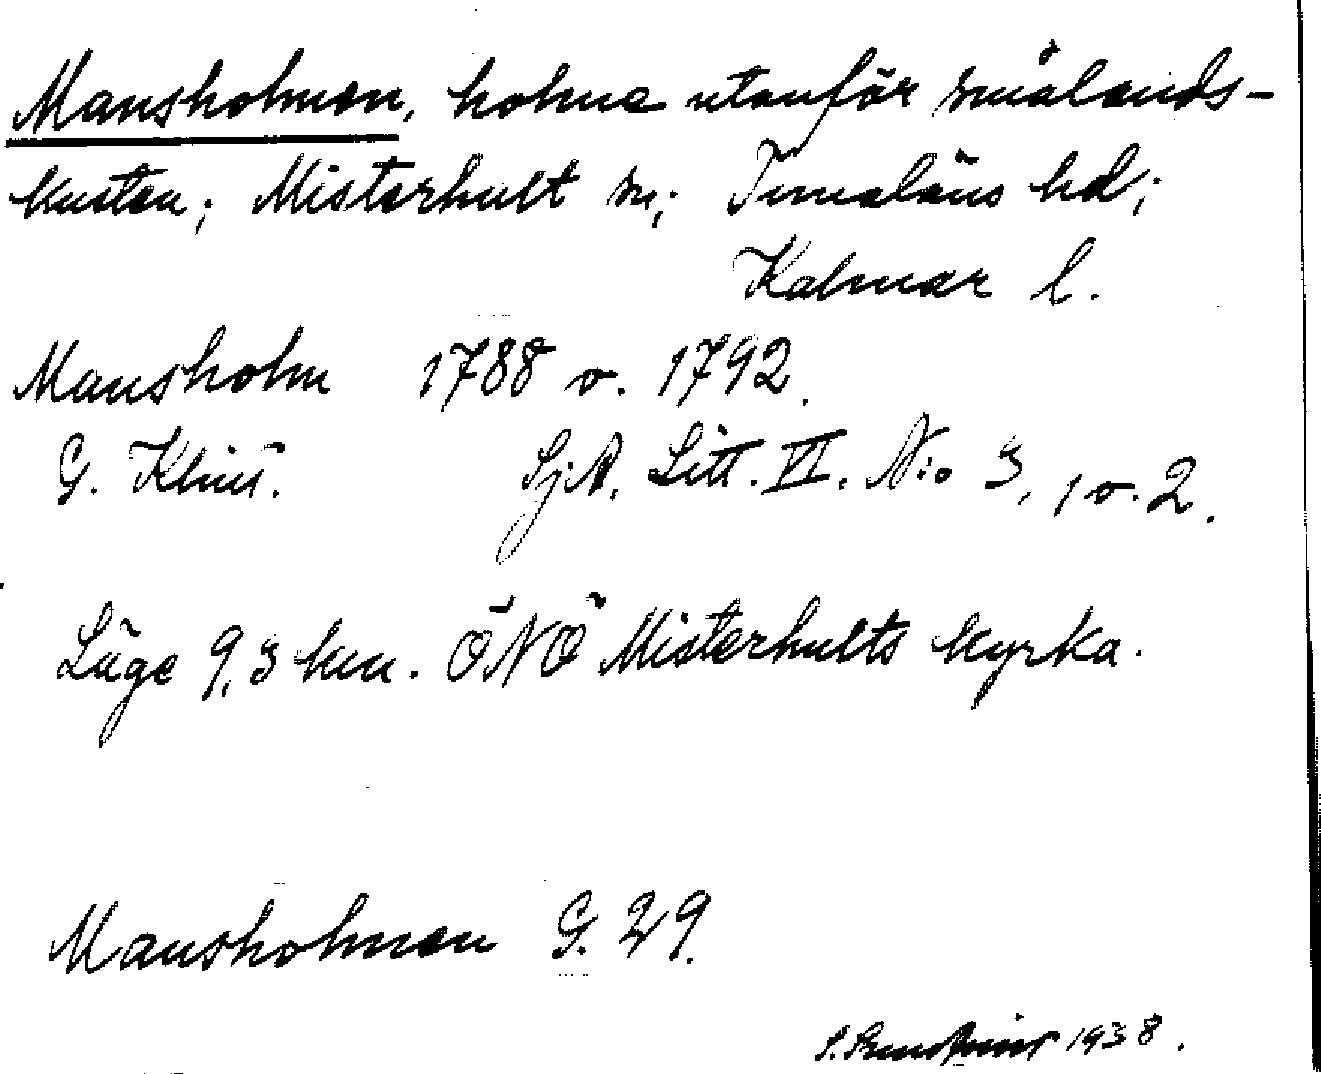 Mansholmen, holme utanför smålands-
kusten; Misterhult sn; Tunaläns hd;
Kalmar l.
Mansholm 1788 o. 1792.
G. Klint. Sj.A. Litt. VI. N:o 3, 1 o. 2.
Läge 9,3 km. ÖNÖ Misterhults kyrka.
Mansholmen G. 29.
1938.